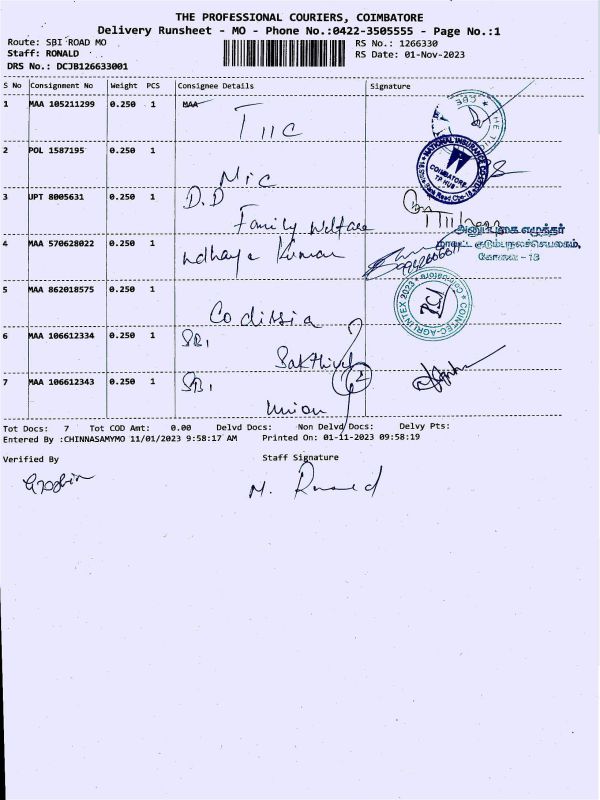 THE PROFESSIONAL COURIERS, COIMBATORE
Delivery Runsheet - MO - Phone No.:0422-3505555 - Page No.:1
Route: SBI ROAD MO
RS No.: 1266330
Staff: RONALD
RS Date: 01-Nov-2023
DRS No.: DCJB126633001
S No Consignment No Weight PCS Consignee Details Signature
1 MAA 105211299 0.250 1 MAA
TIIC
2 POL 1587195 0.250 1
NIC
NATIONAL INSURANCE
COIMBATORE
TP HUB
3 UPT 8005631 0.250 1 D.D
Family Welfare
அலுவலக எழுத்தர்
மாவட்ட குடும்பநலச்செயலகம்,
கோவை - 18
4 MAA 570628022 0.250 1 Udhaya Kumar
5 MAA 862018575 0.250 1
Codissia
COINTEC-AGRIINTEX 2023
6 MAA 106612334 0.250 1 SBI
Sakthivel
7 MAA 106612343 0.250 1 SBI
Union
2
Tot Docs: 7 Tot COD Amt: 0.00 Delvd Docs: Non Delvd Docs: Delvy Pts:
Entered By :CHINNASAMYMO 11/01/2023 9:58:17 AM Printed On: 01-11-2023 09:58:19
Verified By Staff Signature